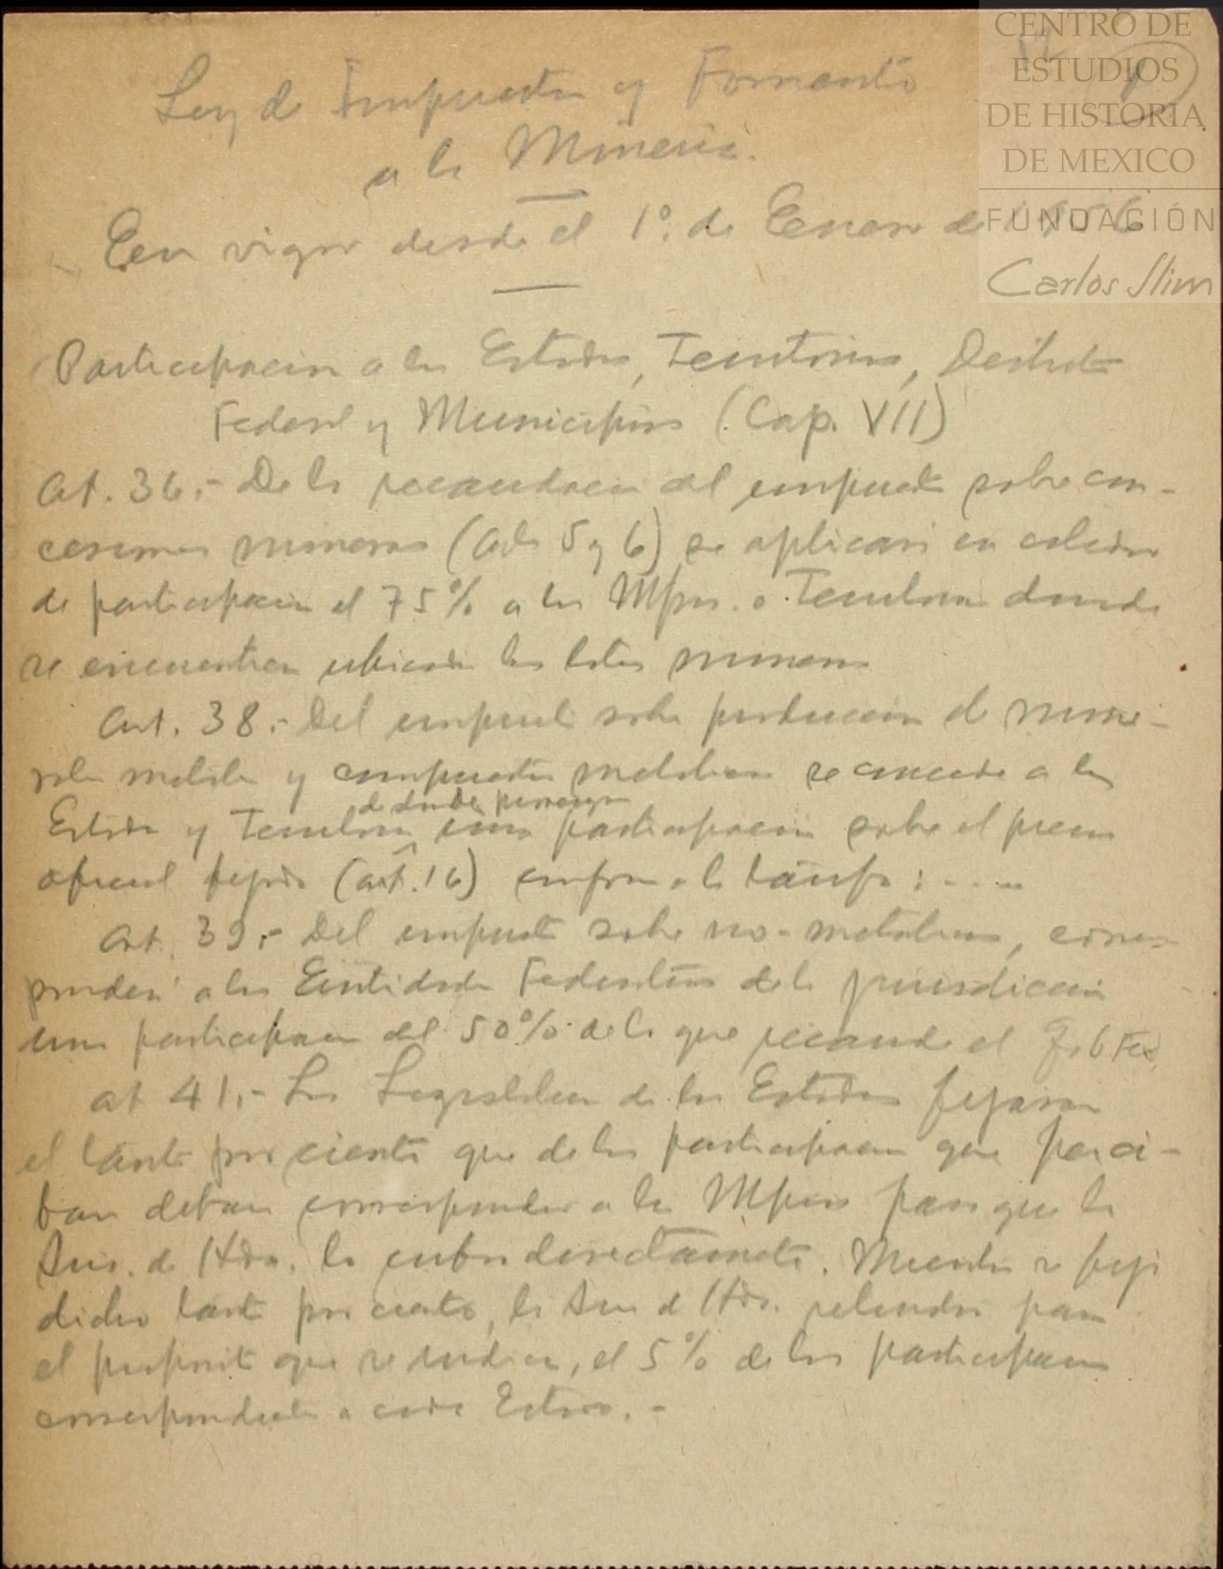 CENTRO DE
ESTUDIOS
DE HISTORIA
DE MEXICO
FUNDACIÓN
Carlos Slim
Ley de Impuestos y Fomento
a la Minería.
En vigor desde el 1º. de Enero de
Participacion a los Estados, Territorios, Distrito
Federal y Municipios (Cap. VII)
Art. 36.- De la recaudacion del impuesto sobre con-
cesiones mineras (Arts 5 y 6) se aplicará en calidad
de participacion el 75% a los Mpios. o Territorios donde
se encuentren ubicados los lotes mineros
Art. 38.- Del impuesto sobre produccion de mine-
rales metales y compuestos metalicos se concede a los
de donde provengan
Estados y Territorios una participacion sobre el precio
oficial fijado (art. 16) conforme a la tarifa: ....
Art. 39.- Del impuesto sobre no-metalicos, corres
ponderá a las Entidades Federativas de la jurisdiccion
una participacion del 50% de lo que recaude el Gob Fed
Art 41.- Las Legislaturas de los Estados fijarán
el tanto por ciento que de las participaciones que perci-
ban deban corresponder a los Mpios para que la
Sria. de Hda. lo cubra directamente. Mientras se fija
dicho tanto por ciento, la Sria de Hda. retendrá para
el proposito que se indica, el 5% de las participaciones
correspondientes a cada Estado.-